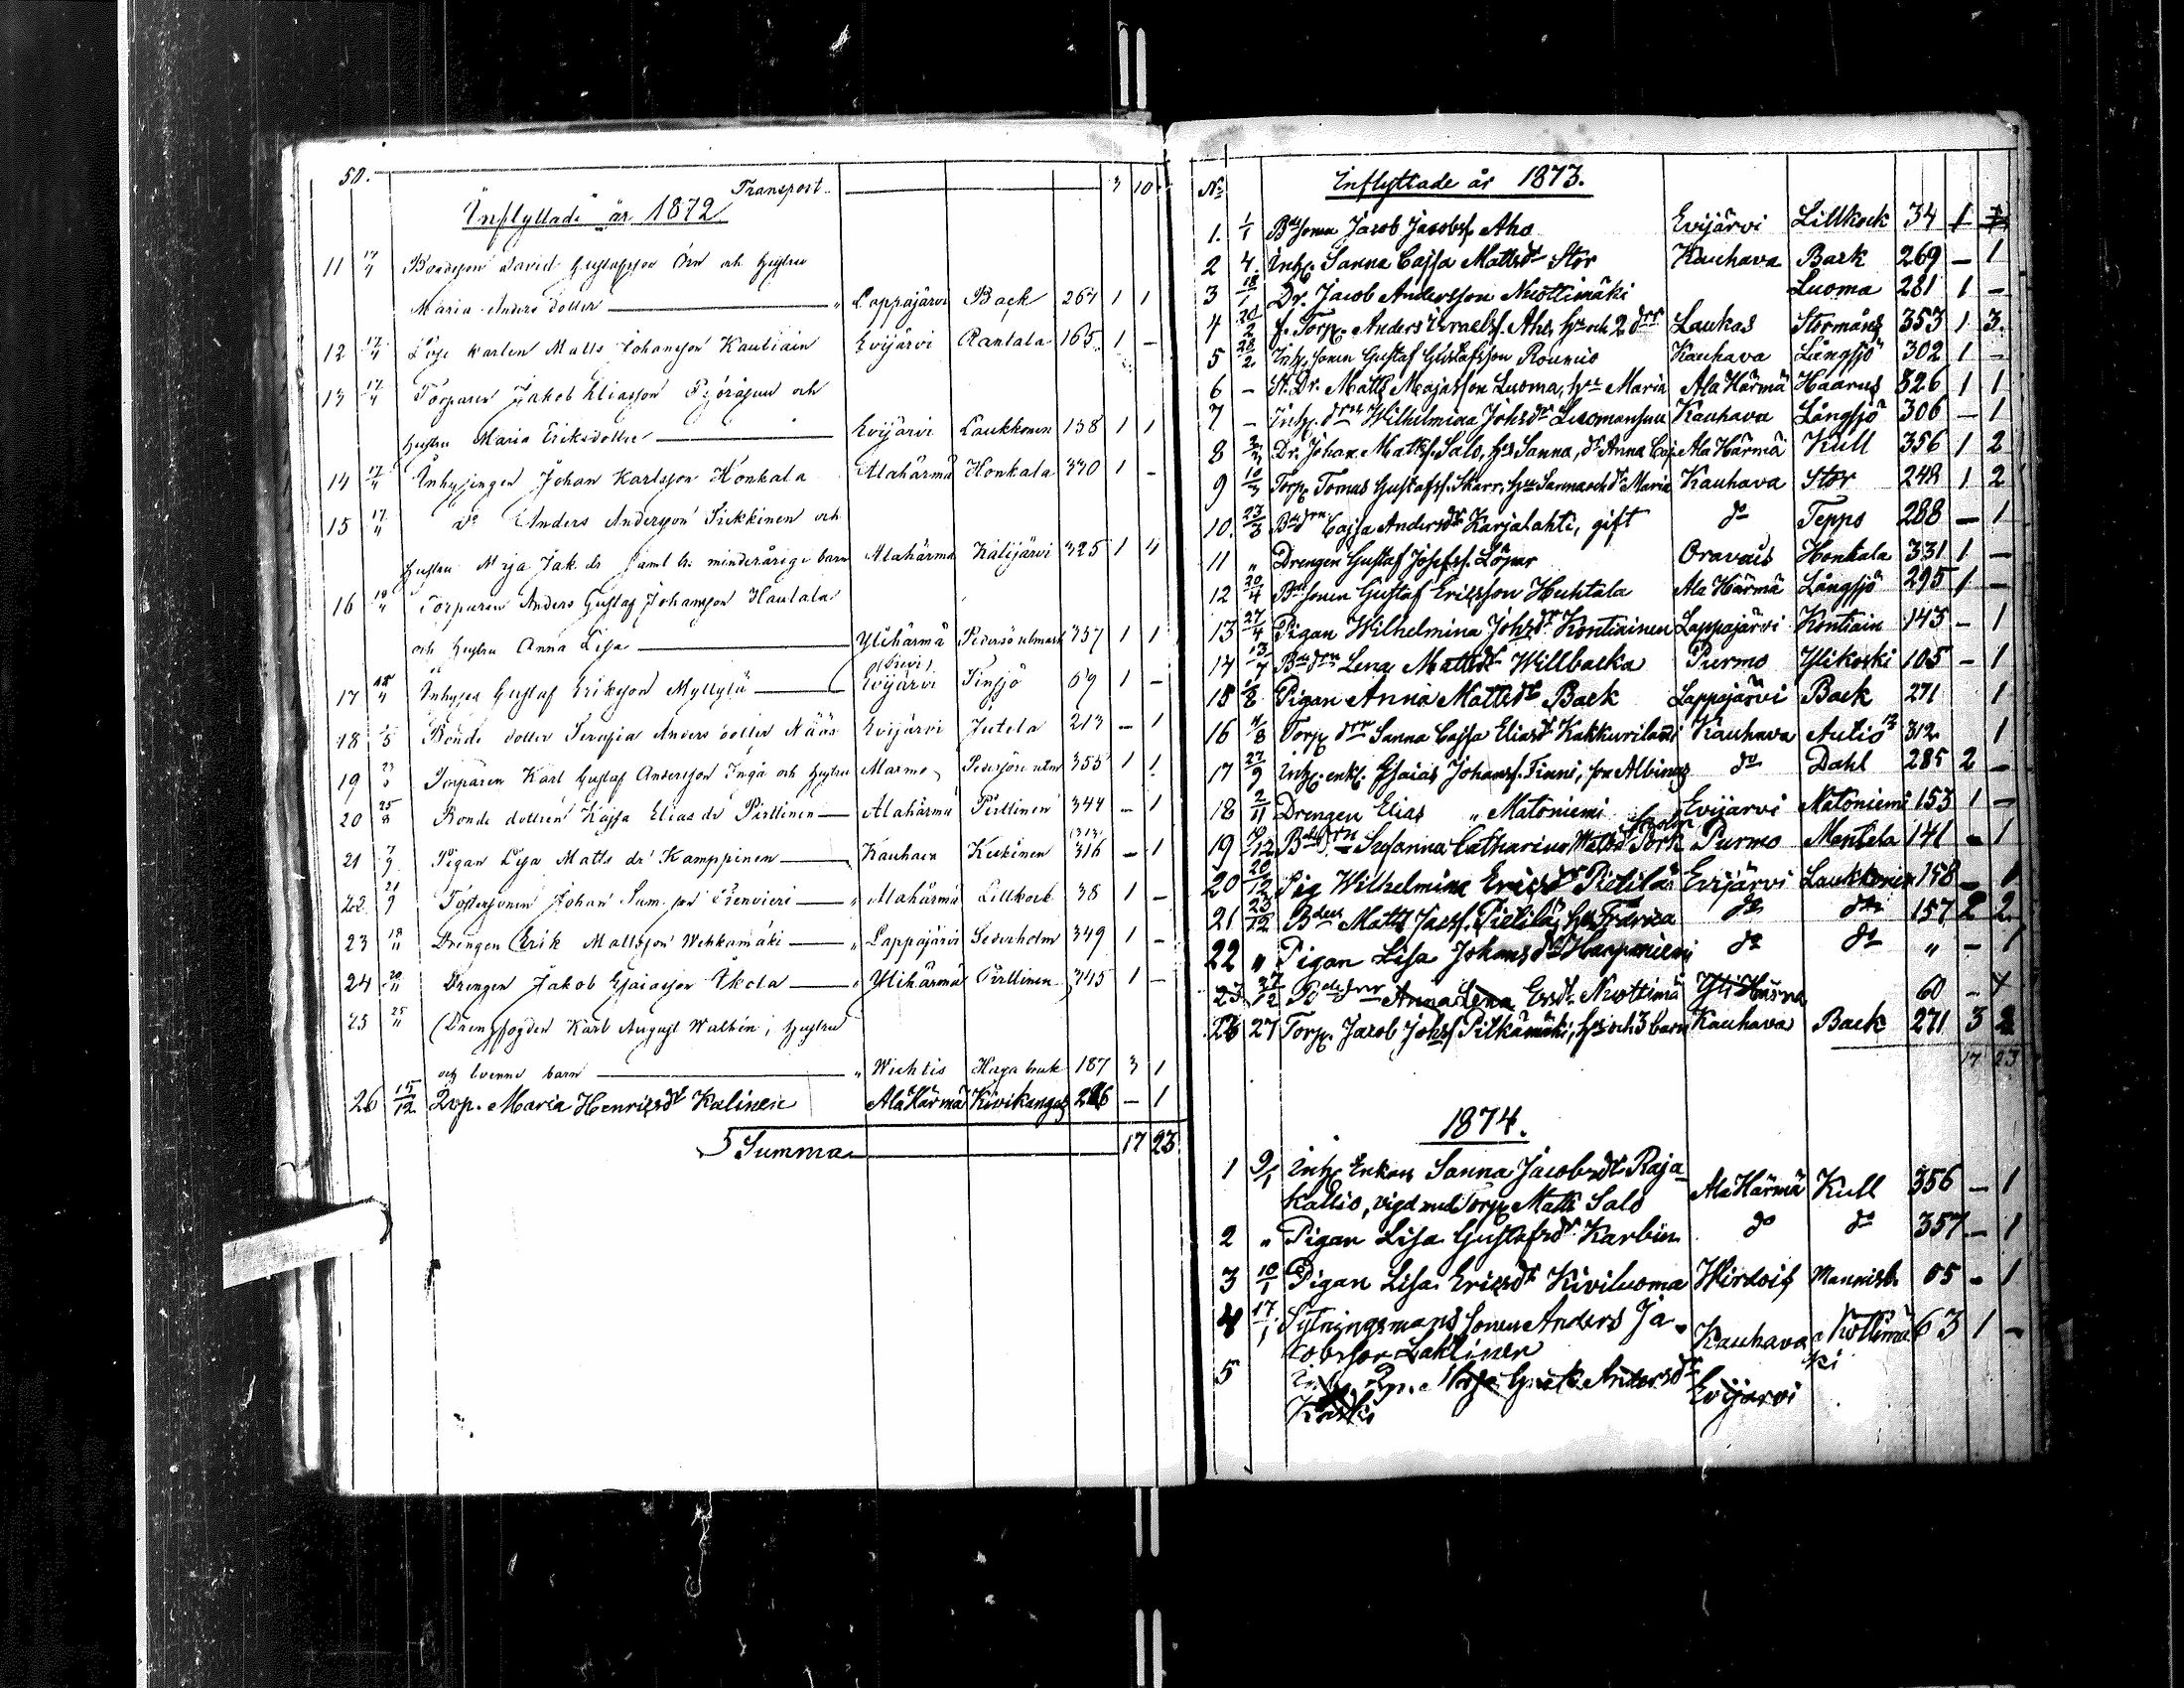 50.
Transport 3 10
Inflyttade år 1872
11 17/4 Bondeson David Gustafsson Örn och hustru
Maria Anders dotter " Lappajärvi Back 267 1 1
12 17/4 Löse karlen Matts Johansson Kautiain Evijärvi Rantala 165 1 -
13 17/4 Torparen Jakob Eliasson och
hustru Maria Eriksdotter Evijärvi Laukkonen 138 1 1
14 17/4 Inhysingen Johan Karlsson Honkala Alahärmä Honkala 330 1 -
15 17/4 do Anders Andersson Sirkkinen och
hustru Maja Jak. dr samt minderåriga barn Alahärmä Kalijärvi 325 1 4
16 18/4 Torparen Anders Gustaf Johansson Hautala
och hustru Anna Lisa Ylihärmä Pedersö utmark 357 1 1
17 18/4 Inhyses Gustaf Eriksson Myllylä Evijärvi Finsjö 69 1 -
18 1/5 Bonde dotter Serafia Anders dotter Nääs Evijärvi Jutela 213 - 1
19 23/5 Torparen Karl Gustaf Andersson Inga och hustru Marmo Pedersöre utm 355 1 1
20 25/8 Bonde dottren Kajsa Elias dr Pirttinen Alahärmä Pirttinen 344 - 1
21 7/9 Pigan Lisa Matts dr Kamppinen Kauhava Keskinen 316 - 1
22 21/9 Fostersonen Johan Sam. son Alahärmä Lillkock 38 1 -
23 18/11 Drengen Erik Mattsson Wehkamäki " Lappajärvi Sederholm 349 1 -
24 20/11 Drengen Jakob Esaiasson Äkola " Ylihärmä Pirttinen 345 1 -
25 25/11 Drengfogden Karl August Walbin, hustru
och tvenne barn " Wichtis Haga bruk 187 3 1
26 15/12 Qvp. Maria Henricsdr Kalinen Ala Härmä Kivikangas 226 - 1
Summa 17 23
No Inflyttade år 1873.
1. 1/1 Bdesonen Jacob Jacobss. Aho Evijärvi Lillkock 34 1 1
2 4. Inh. Sanna Cajsa Mattsdr Stor Kauhava Back 269 - 1
3 18/1 Dr. Jacob Andersson Nuottimäki Luoma 281 1 -
4 20/2 f. Torp. Anders Israelss. Aho, hu och 2 drr Laukas Stormåns 353 1 3.
5 28/2. Inh. sonen Gustaf Gustafsson Rounio Kauhava Långsjö 302 1 -
6 - St. Dr. Matts Majasson Luoma, hu Maria Ala Härmä Haarus 326 1 1
7 - Inh. drn Wilhelmina Johsdr Luomansuu Kauhava Långsjö 306 - 1
8 2/3 Dr. Johan Mattss. Salo, hu Sanna, dr Anna Caj. Ala Härmä Kull 356 1 2
9 10/3 Torp. Tomas Gustafss. Skarr, hu Sanna och dr Maria Kauhava Stor 248 1 2
10. 23/3 Bdedrn Cajsa Andersdr Karjalahti, gift do Tepps 288 - 1
11 " Drengen Gustaf Josefss. Löpar Oravais Honkala 331 1 -
12 20/4 Bdesonen Gustaf Ericsson Huhtala Ala Härmä Långsjö 295 1 -
13 27/4 Pigan Wilhelmina Johsdr Kontiainen Lappajärvi Kontiain 143 - 1
14 13/7 Bdedrn Lena Mattsdr Willbacka Purmo Ylikoski 105 - 1
15 1/8 Pigan Anna Mattsdr Back Lappajärvi Back 271 1
16 4/8 Torp. drn Sanna Cajsa Eliasdr Kakkurilampi Kauhava Autio 312 1
17 27/9 Inh. enkl. Esaias Johanss. Finni, son Albinus do Dahl 285 2 -
18 2/11 Drengen Elias " Matoniemi Evijärvi Matoniemi 153 1 -
19 19/12 Bdedrn Susanna Catharina Mattsdr Purmo Mentela 141 - 1
20 20/12 Pig Wilhelmina Ericsdr Pietilä Evijärvi Laukkonen 158 - 1
21 23/12 Bden Matts Jacss. Pietilä, hu Fredrica do do 157 2 2
22 " Pigan Lisa Johansdr Harjuniemi do do " - 1
23 27/12 Bdedrn Anna Lena Ersdr Nuottimä Yli Härmä 60 - 1
23 27 Torp. Jacob Johss Pitkämäki, hu och 3 barn Kauhava Back 271 3 2
17 23
1874.
1 9/1 Inh. Enkan Sanna Jacobsdr Raja-
kallio, vigd med Torp. Matts Salo Ala Härmä Kull 356 - 1
2 " Pigan Lisa Gustafsdr Karbin do do 357 - 1
3 10/1 Pigan Lisa Ericsdr Kiviluoma Wirdois Mannist. 65 - 1
4 17/1 Sytningsmans sonen Anders Ja-
kobsson Lahtinen Kauhava Nottimä 63 1 -
ki
5 Qp. Maja Greta Andersdr Evijärvi
Koski